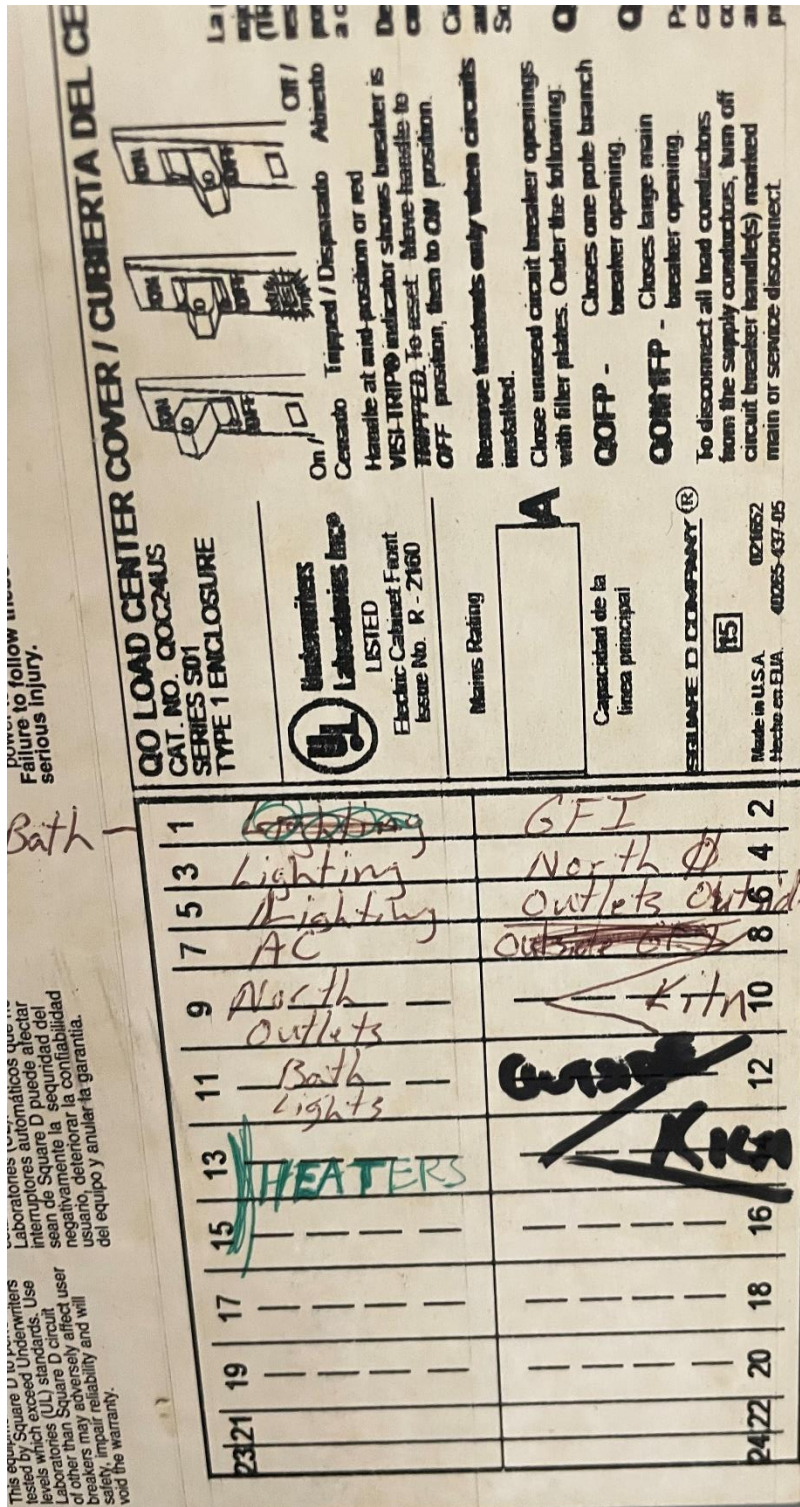 power
Failure to follow these
serious injury.
Laboratories (UL)
interruptores automáticos que no
sean de Square D puede afectar
negativamente la seguridad del
usuario, deteriorar la confiabilidad
del equipo y anular la garantia.
tested by Square D to
levels which exceed Underwriters
Laboratories (UL) standards. Use
of other than Square D circuit
breakers may adversely affect user
safety, impair reliability and will
void the warranty.
QO LOAD CENTER COVER / CUBIERTA DEL CE
CAT. NO. QOC24US
SERIES S01
TYPE 1 ENCLOSURE
UL
Underwriters
Laboratories Inc®
LISTED
Electric Cabinet Front
Issue No. R - 2160
Mains Rating
A
Capacidad de la
linea principal
SQUARE D COMPANY ®
15
Made in U.S.A. 021652
Hecho en EUA. 40265-437-05
ON ON ON
OFF OFF OFF
On / Tripped / Disparado Off /
Cerrado Abierto
Handle at mid-position or red
VISI-TRIP® indicator shows breaker is
TRIPPED. To reset Move handle to
OFF position, then to ON position.
Remove twistouts only when circuits
installed.
Close unused circuit breaker openings
with filler plates. Order the following:
QOFP - Closes one pole branch
breaker opening.
QOMMFP - Closes large main
breaker opening.
To disconnect all load conductors
from the supply conductors, turn off
circuit breaker handle(s) marked
main or service disconnect.
Bath
1 Lighting GFI 2
3 Lighting North 4
5 Lighting Outlets Outsid 6
7 AC Outside GFI 8
9 North Kitn 10
Outlets
11 Bath 12
Lights
13 HEATERS
15 16
17 18
19 20
21 22
23 24